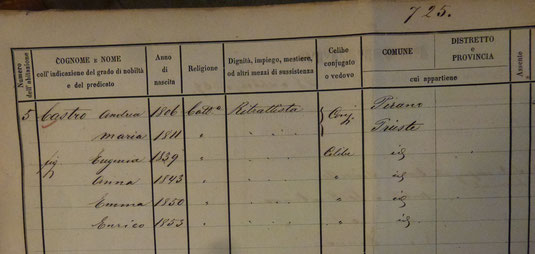 725.
Numero dell'abitazione | COGNOME e NOME coll'indicazione del grado di nobiltà e del predicato | Anno di nascita | Religione | Dignità, impiego, mestiere, od altri mezzi di sussistenza | Celibe conjugato o vedovo | COMUNE | DISTRETTO e PROVINCIA | Assente
cui appartiene
5 Castro Andrea 1806 Cattª Ritrattista Conj. Pirano
Maria 1811 " " " " Trieste
fig Eugenia 1839 " " " " Celibe id
Anna 1843 " " " " " id
Emma 1850 " " " " " id
Enrico 1853 " " " " " id